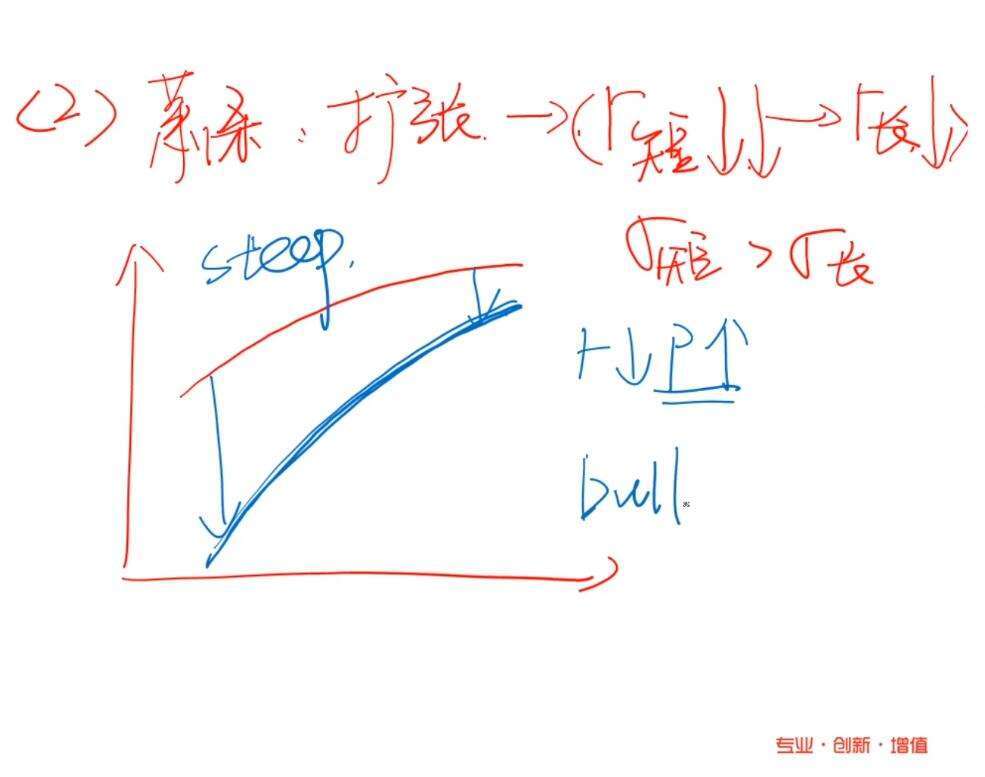 (2) 萧条：扩张. →(r短↓↓→r长↓)
steep.
σ短 > σ长
r↓ P↑
bull
专业·创新·增值